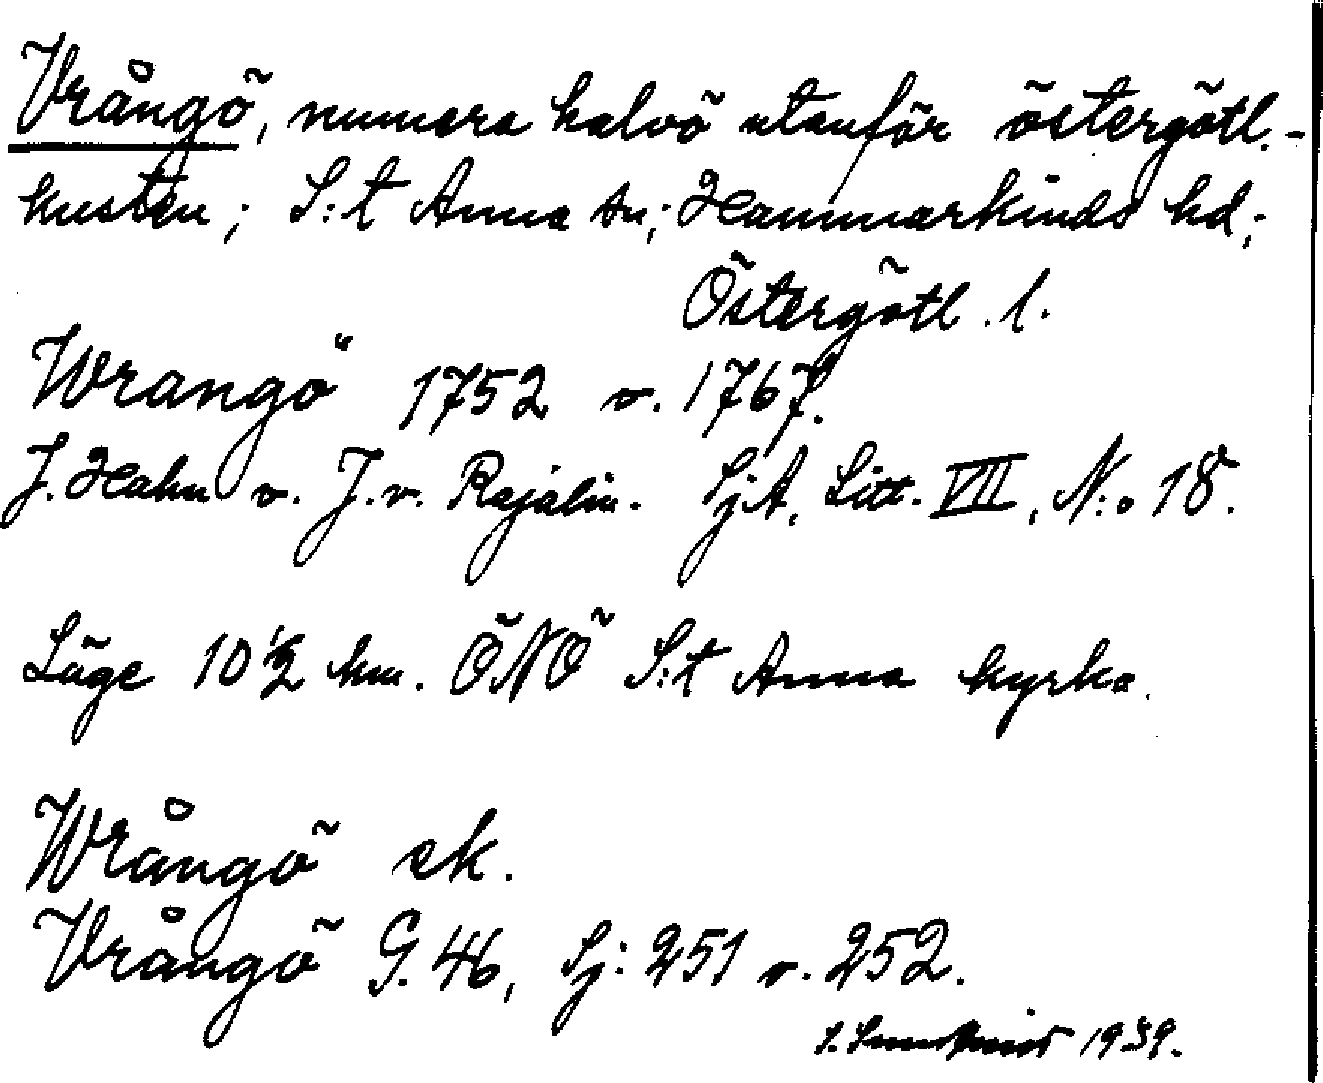 Vrångö, numera halvö utanför östergötl.-
kusten; S:t Anna sn; Hammarkinds hd;
Östergötl. l.
Wrangö 1752 o. 1767.
J. Hahn o. J. v. Rajalin. SjA, Litt. VII, N:o 18.
Läge 10 ½ km. ÖNÖ S:t Anna kyrka.
Wrångö ek.
Vrångö G. 46, Sj: 251 o. 252.
1939.